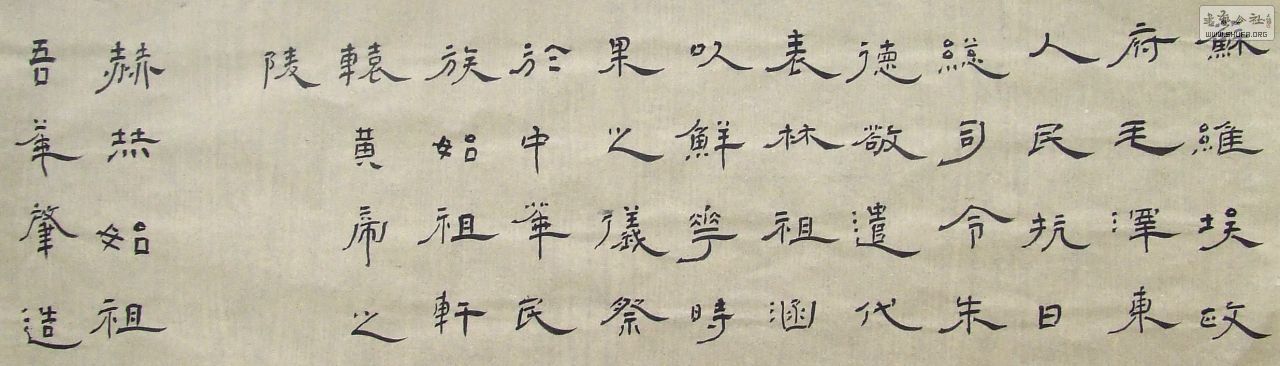 蘇維埃政
府毛澤東
人民抗日
總司令朱
德敬遣代
表林祖涵
以鮮花時
果之儀祭
於中華民
族始祖軒
轅黃帝之
陵
赫赫始祖
吾華肇造
书法公社
WWW.SHUFA.ORG